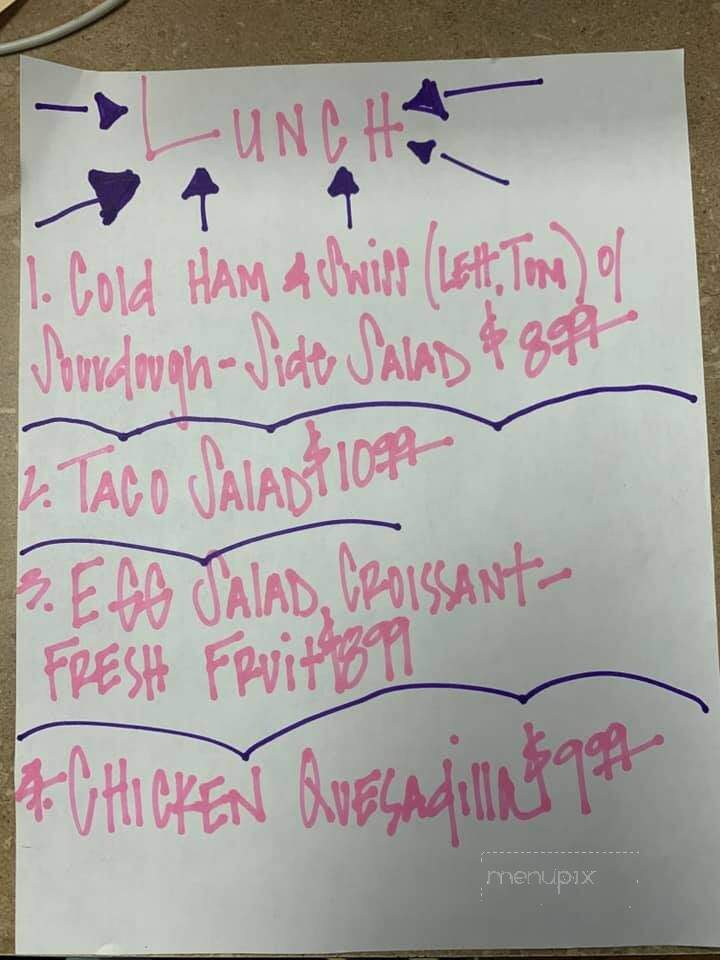 LUNCH
1. Cold HAM & Swiss (Lett, Tom) o/
Sourdough - Side SALAD $8.99
2. TACO SALAD $10.99
3. EGG SALAD, CROISSANT -
FRESH FRUIT $8.99
4. CHICKEN QUESAdillA $9.99
menupix